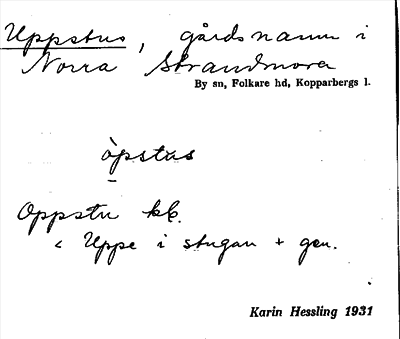 Uppstus, gårdsnamn i
Norra Strandmora
By sn, Folkare hd, Kopparbergs l.
òpstus
Oppstu kb.
< Uppe i stugan + gen.
Karin Hessling 1931